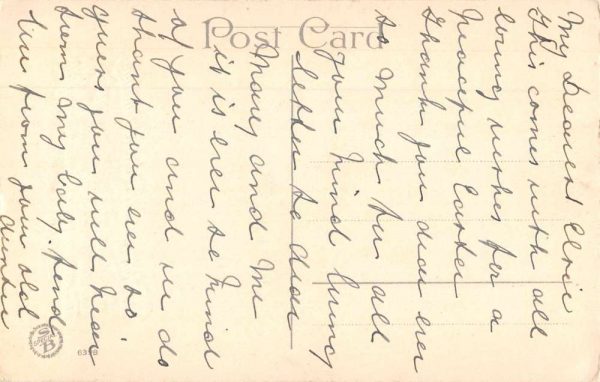 Post Card
My Dearest Elsie
This comes with all
loving wishes for a
Peaceful Easter
Thank you dear ever
so much for all
your kind loving
letter to dear
Mary and me
it is ever so kind
of you and we do
thank you ever so
guess you will hear
from my lady. Fond
love from your old
Auntie
6398